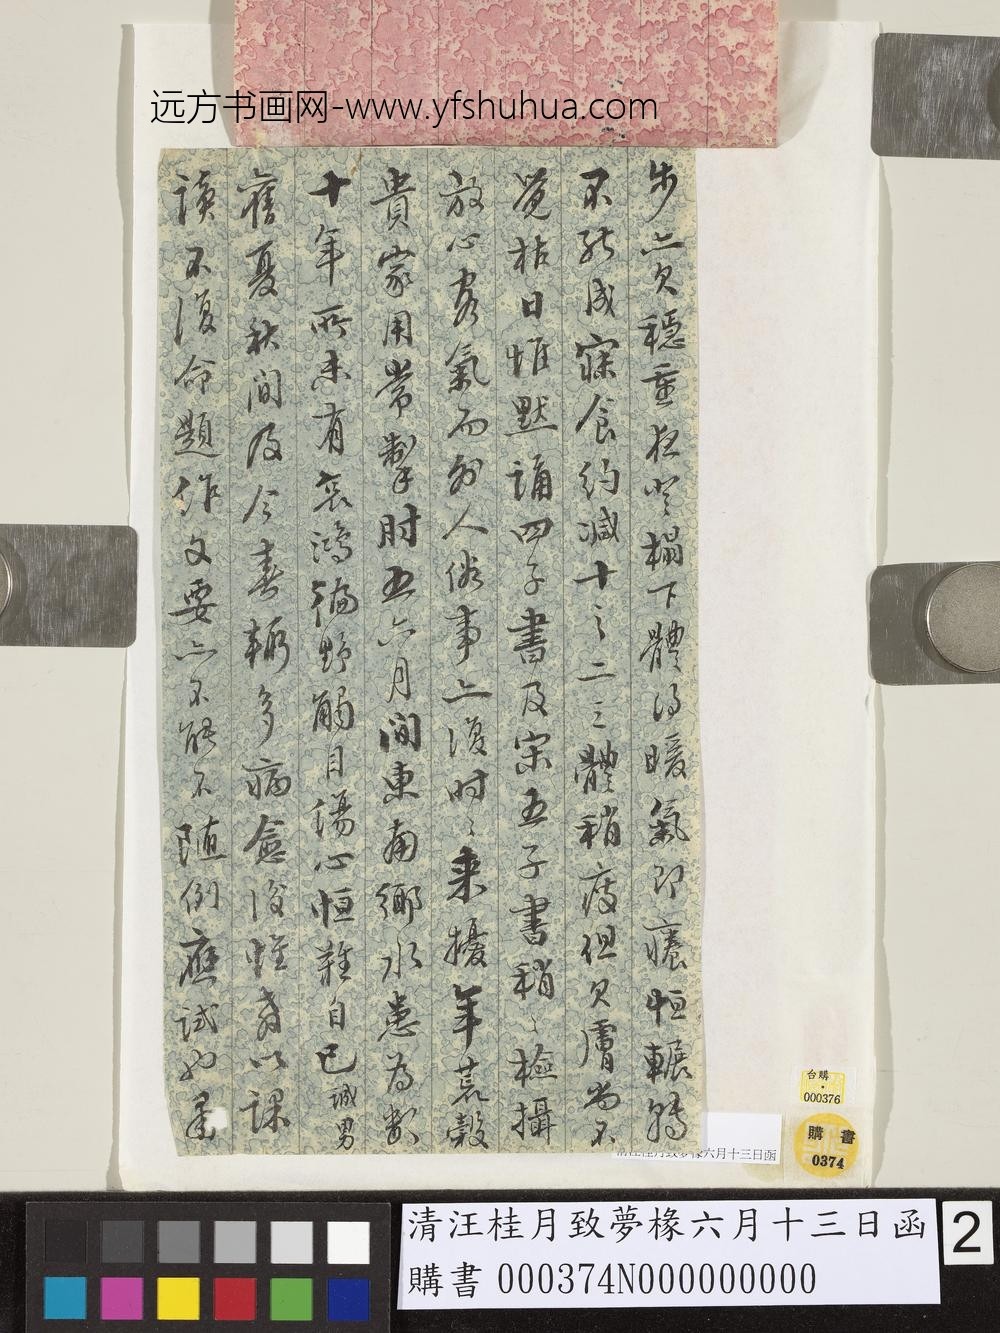 远方书画网-www.yfshuhua.com
步亦欠穩重夜登榻下體得暖氣即癢恒輾轉
不能成寐食約減十之二三體稍疲但欠膚尚不
覺枯日惟默誦四子書及宋五子書稍々檢攝
放心客氣而外人俗事亦復時々來擾年荒穀
貴家用常掣肘五六月間東南鄉水患為數
十年所未有哀鴻徧野觸目傷心恒難自已誠男
舊夏秋間及今春輒多病愈後惟者以課
讀不復命題作文要亦不能不隨例應試也
清汪桂月致夢椽六月十三日函
台購
000376
購書
0374
清汪桂月致夢椽六月十三日函
購書 000374N000000000
2